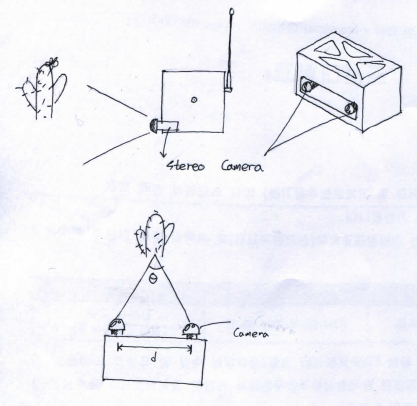 Stereo Camera
θ
Camera
d